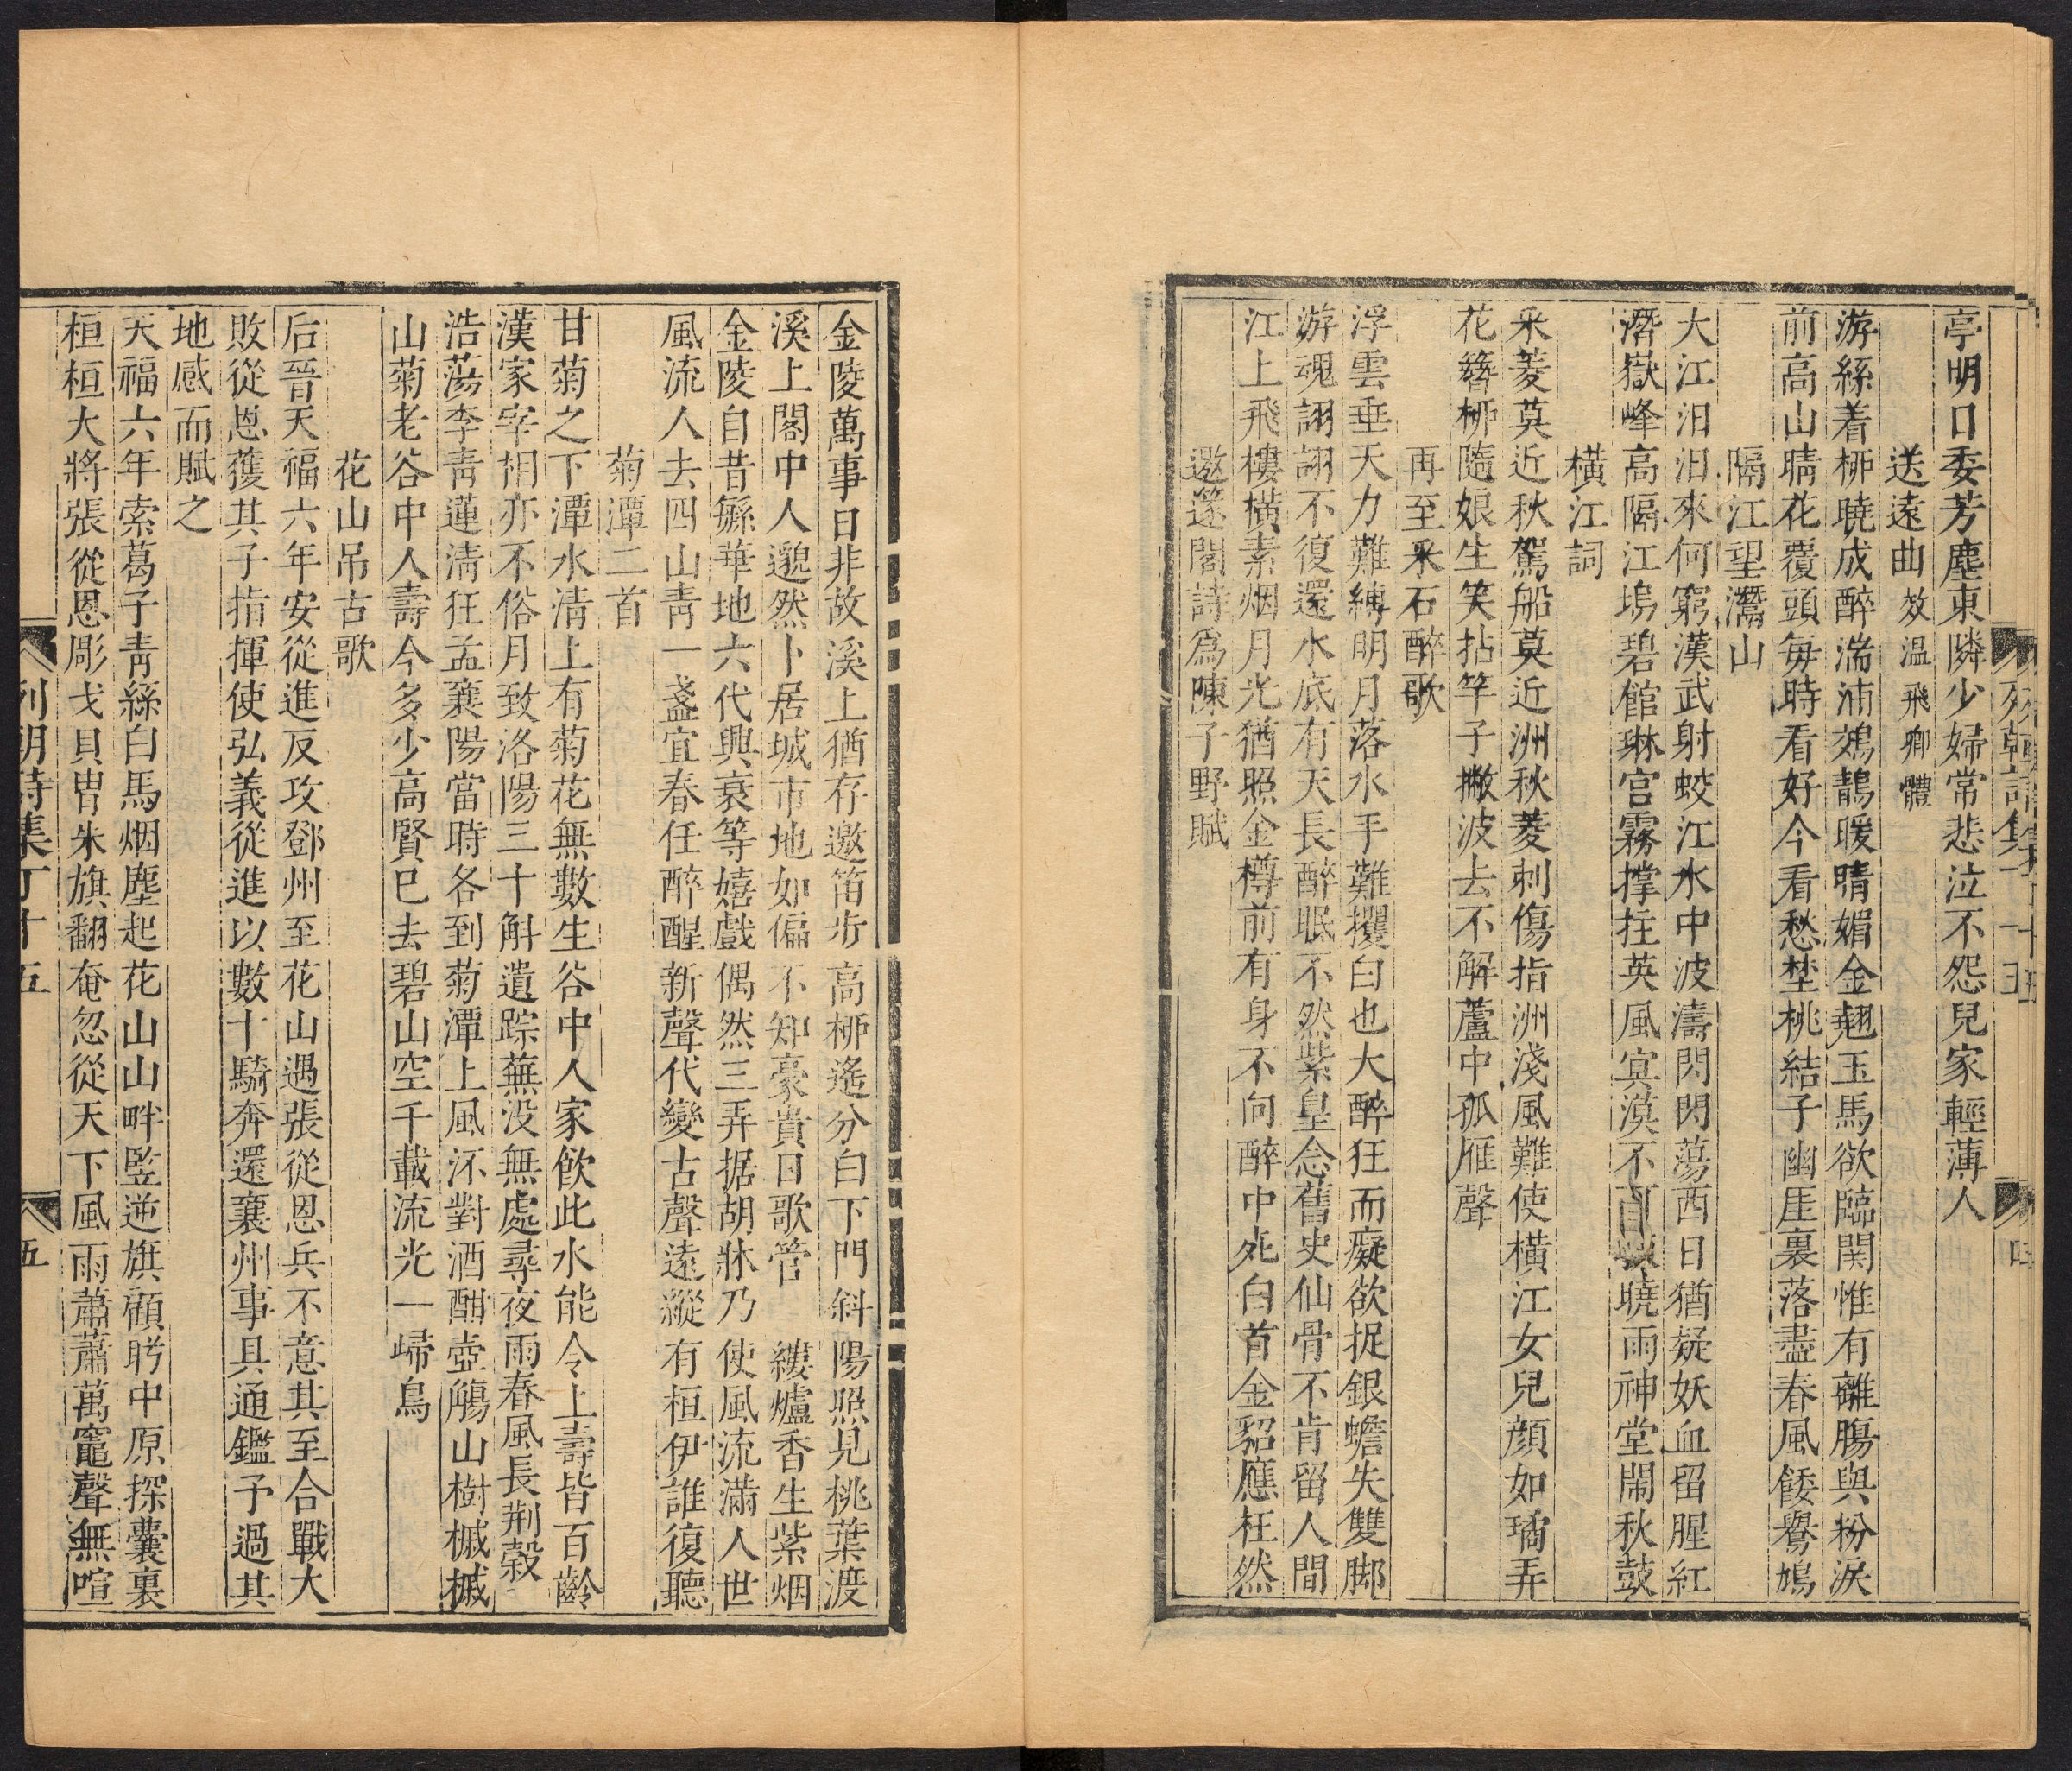 亭明口委芳塵東隣少婦常悲泣不怨兒家輕薄人
送遠曲效温飛卿體
游絲着栁曉成醉湍浦鵁鶄暖晴媚金翹玉馬欲臨関惟有離腸與粉淚
前高山晴花覆頭每時看好今看愁埜桃結子幽厓裏落盡春風餧鸒鳩
隔江望灊山
大江汨汨來何窮漢武射蛟江水中波濤閃閃蕩西日猶疑妖血留腥紅
潛嶽峰高隔江塢碧館琳宮霧撐拄英風冥漠不曉雨神堂鬧秋鼓
橫江詞
采菱莫近秋駕船莫近洲秋菱刺傷指洲淺風難使橫江女兒顔如璚弄
花簪栁隨娘生笑拈竿子撇波去不解蘆中孤雁聲
再至采石醉歌
浮雲垂天力難縛明月落水手難攫白也大醉狂而癡欲捉銀蟾失雙脚
游魂詡詡不復還水底有天長醉眠不然紫皇念舊史仙骨不肯留人間
江上飛樓橫素烟月光猶照金樽前有身不向醉中死白首金貂應枉然
邀篴閣詩爲陳子野賦
金陵萬事日非故溪上猶存邀笛步高栁遙分白下門斜陽照見桃葉渡
溪上閣中人邈然卜居城市地如偏不知豪貴日歌管縷爐香生紫烟
金陵自昔繇華地六代興衰等嬉戲偶然三弄据胡牀乃使風流滿人世
風流人去四山青一盞宜春任醉醒新聲代變古聲遠縱有桓伊誰復聽
菊潭二首
甘菊之下潭水清上有菊花無數生谷中人家飲此水能令上壽皆百齡
漢家宰相亦不俗月致洛陽三十斛遺踪蕪没無處尋夜雨春風長荆榖
浩蕩李青蓮清狂孟襄陽當時各到菊潭上風沠對酒酣壺觴山樹槭槭
山菊老谷中人壽今多少高賢已去碧山空千載流光一歸鳥
花山吊古歌
后晉天福六年安從進反攻鄧州至花山遇張從恩兵不意其至合戰大
敗從恩獲其子指揮使弘義從進以數十騎奔還襄州事具通鑑予過其
地感而賦之
天福六年索葛子靑絲白馬烟塵起花山山畔竪逆旗顧盻中原探囊裏
桓桓大將張從恩彫戈貝冑朱旗翻奄忽從天下風雨蕭蕭萬竈聲無喧
列朝詩集丁十五
五